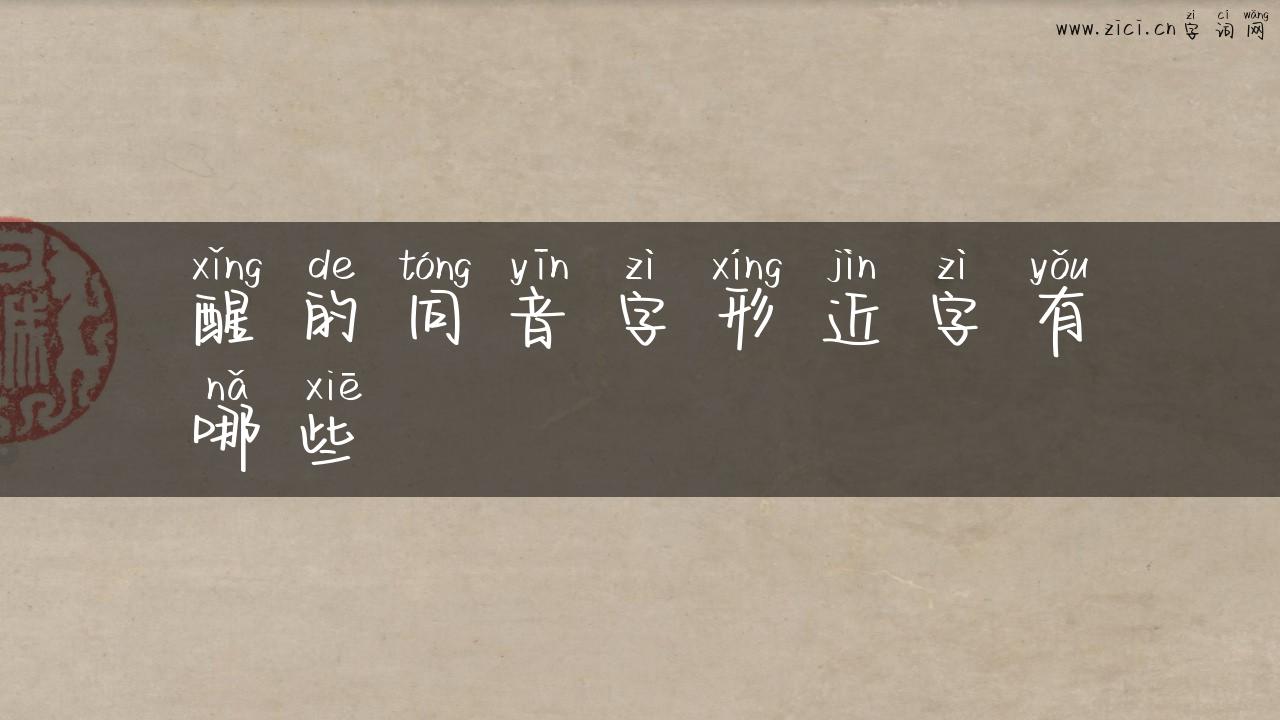 zì cí wǎng
www.zici.cn 字词网
xǐng de tóng yīn zì xíng jìn zì yǒu
醒的同音字形近字有
nǎ xiē
哪些